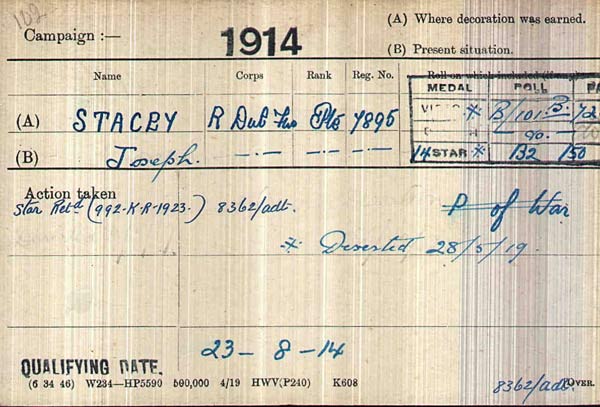 102
Campaign :—
1914
(A) Where decoration was earned.
(B) Present situation.
Name Corps Rank Reg. No. Roll on which included (if any)
MEDAL ROLL PA
(A) STACEY R Dub Fus Pte 7895
VICTORY * B/101 B 72
90
(B) Joseph. —·— —·—
14 STAR * 132 150
Action taken
Star Retd (992-K-R-1923-) 8362/adt.
P of War
* Deserted 28/5/19.
QUALIFYING DATE. 23 - 8 - 14
(6 34 46) W234—HP5590 500,000 4/19 HWV(P240) K608
8362/adt. OVER.